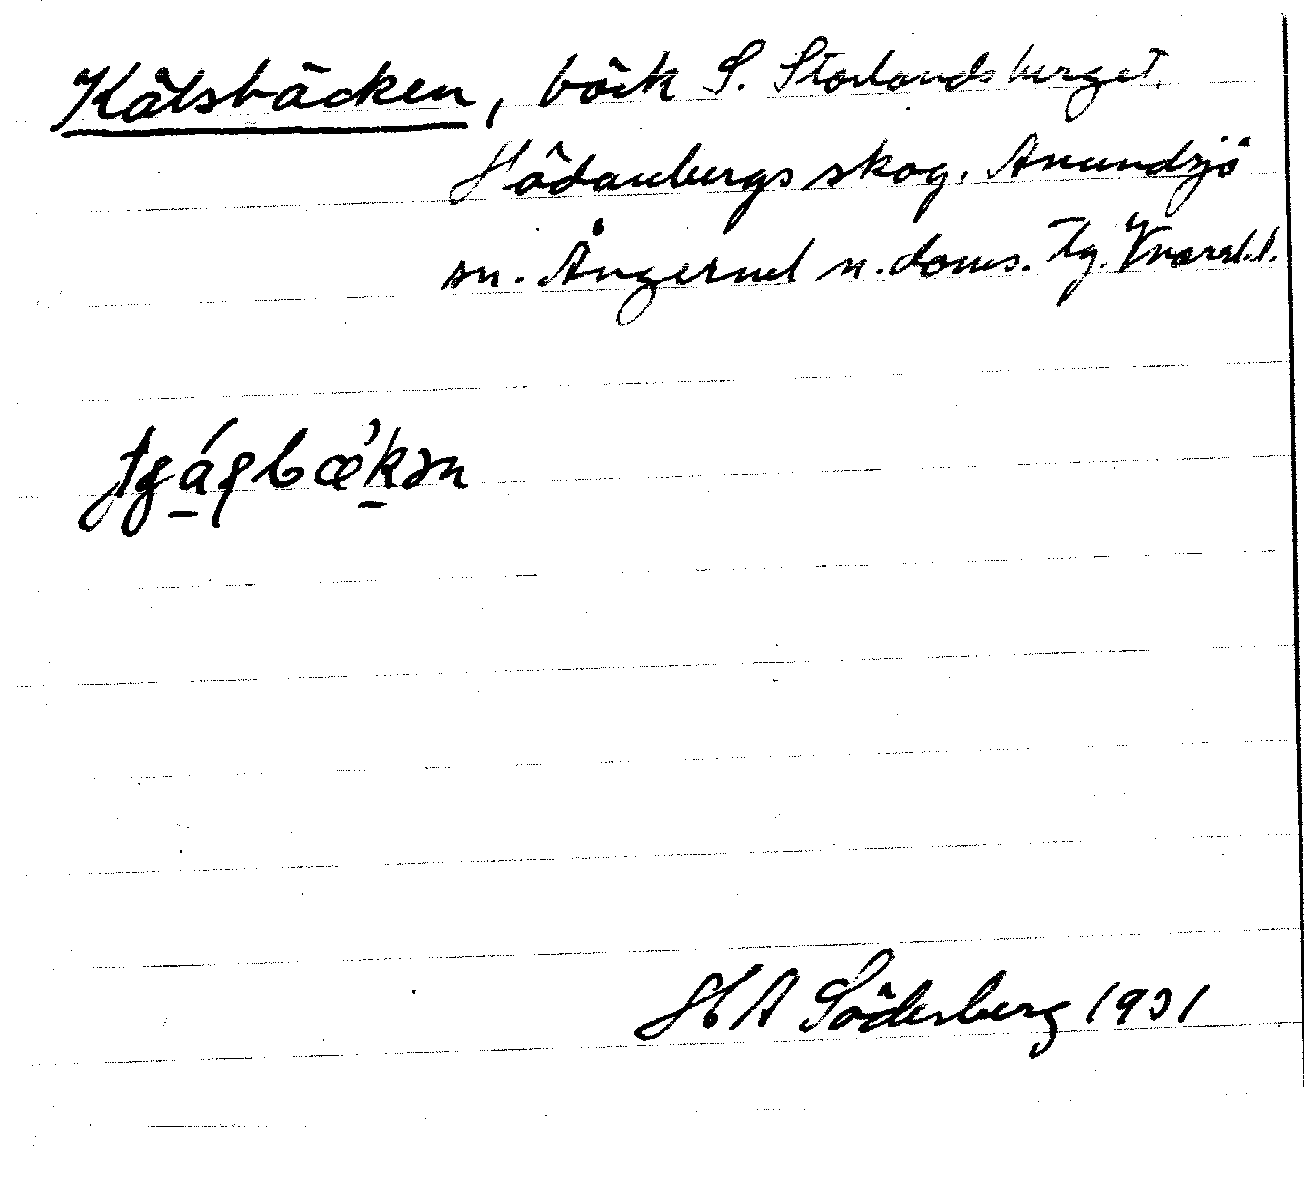 Kälsbäcken, bäck S. Storlandsberget.
Hädanbergs skog. Anundsjö
sn. Ångerml n. doms. Tg. Västernl. l.
H A Söderberg 1931